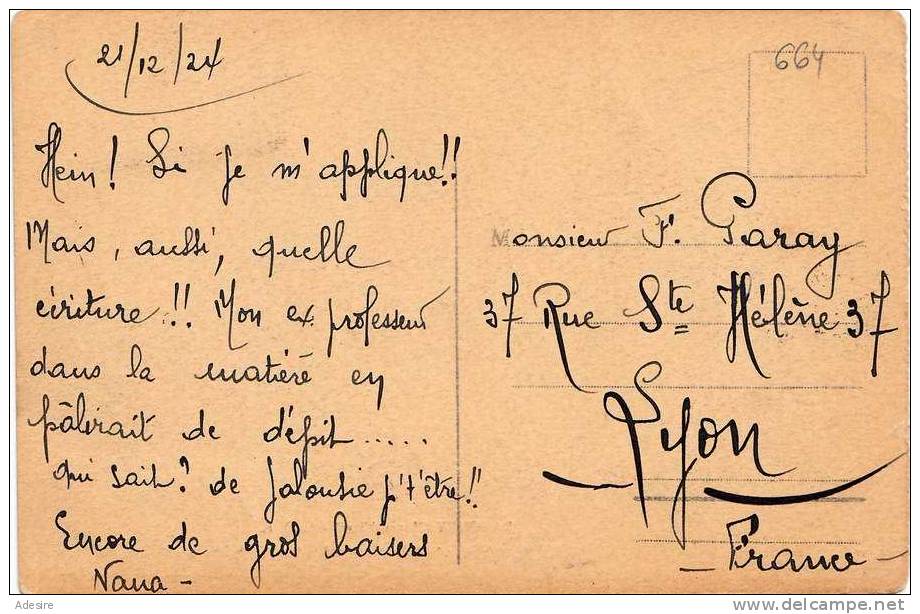 21/12/24
Hein! Si je m'applique!!
Mais, aussi, quelle
écriture!! Mon ex professeur
dans la matière en
pâlirait de dépit.....
qui sait? de jalousie p't'être!!
Encore de gros baisers
Nana -
664
Monsieur F. Paray
37 Rue Ste Hélène 37
Lyon
- France -
Adesire
delcampe.net